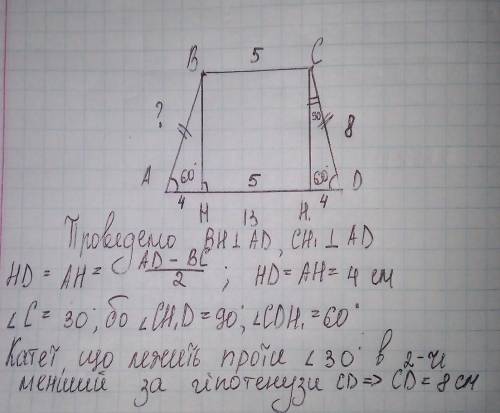 B 5 C
? 30 8
A 60° 5 60° D
4 H 13 H₁ 4
Проведемо BH⊥AD, CH₁⊥AD
HD = AH = AD - BC / 2 ; HD = AH = 4 см
∠C = 30°, бо ∠CH₁D = 90°, ∠CDH₁ = 60°
Катет, що лежить проти ∠30° в 2-чі
менший за гіпотенузи CD => CD = 8 см